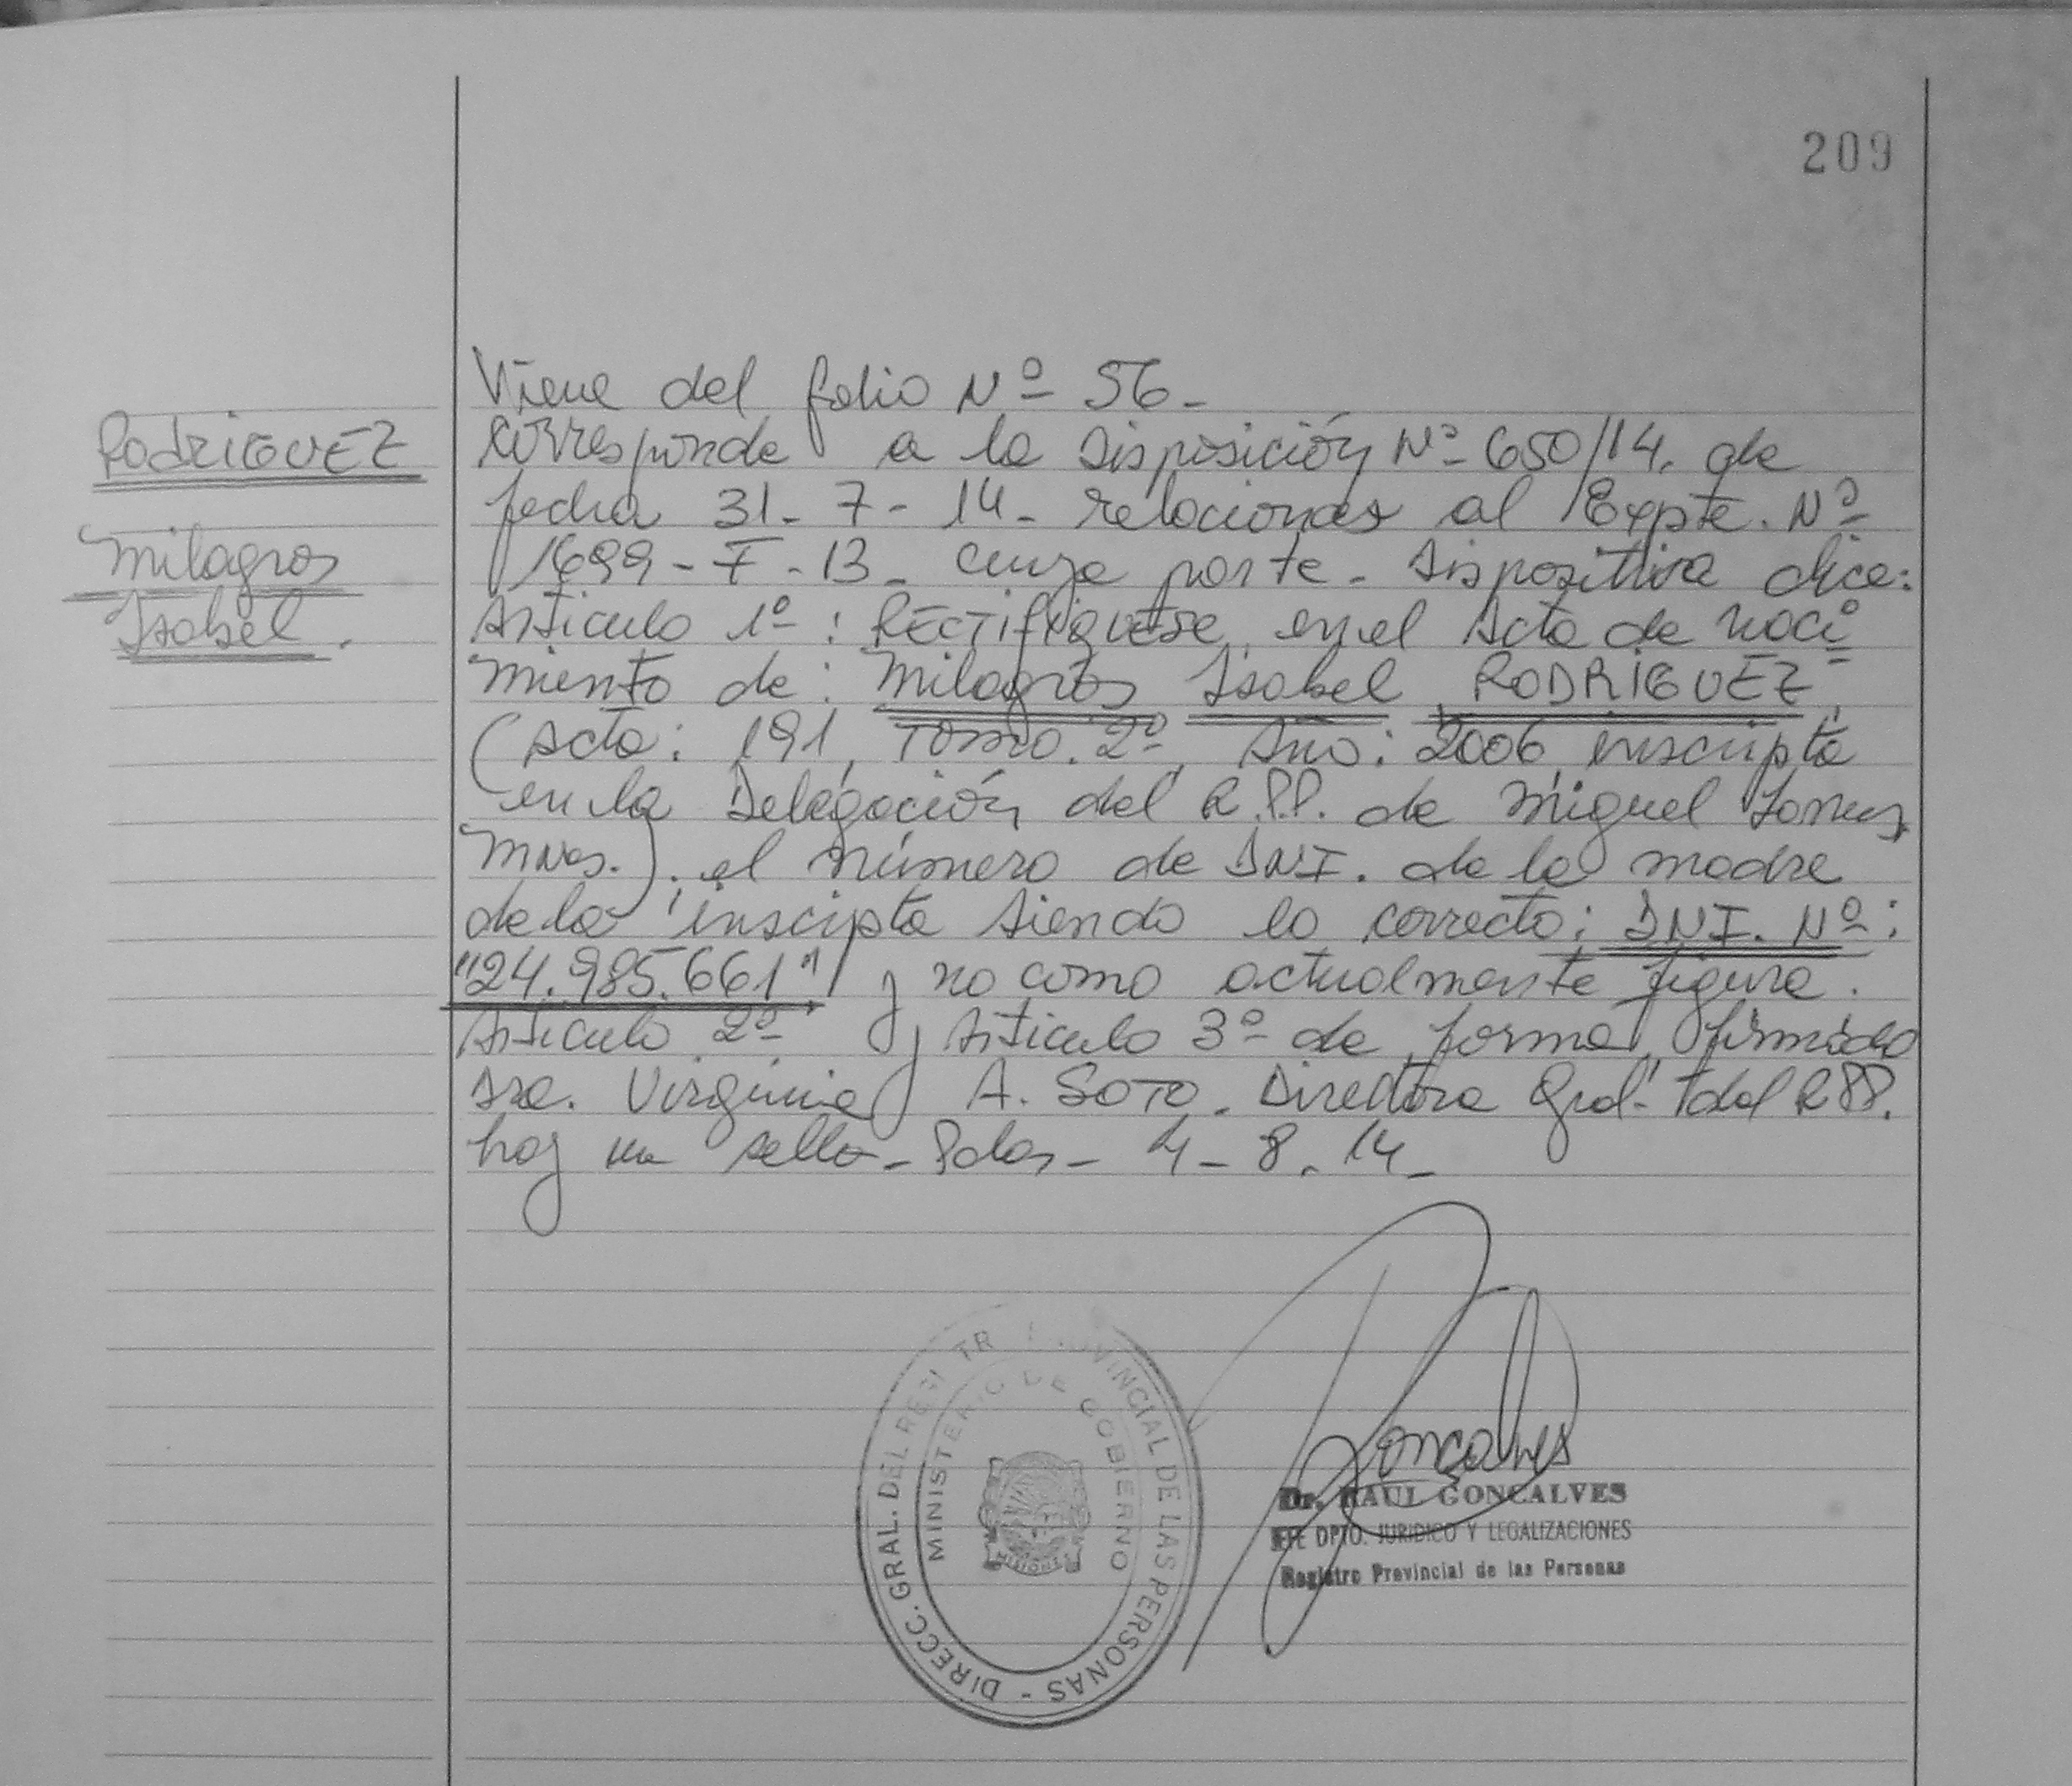 209
Viene del folio Nº 56-
RodRIGUEZ
Corresponde a la Disposición Nº 650/14. de
fecha 31-7-14- relacionas al Expte. Nº
Milagros
1699-I-13- cuya parte. Dispositiva dice:
Isabel.
Articulo 1º: RECTIFIQUESE, en el Acta de naci
miento de: Milagros Isabel RODRIGUEZ
(Acta: 191, Tomo. 2º, Año: 2006, inscripta
en la Delegación del R.P.P. de Miguel Lanus,
Mnes.). el número de DNI. de la madre
de la inscipta siendo lo correcto: DNI. Nº:
"24.985.661" y no como actualmente figura.
Articulo 2º y Articulo 3º de forma, firmado
Sra. Virginia A. SOTO. Directora Gral. del RPP.
hay un sello- Pdas- 4-8-14-
DIRECC. GRAL. DEL REGI TR PROVINCIAL DE LAS PERSONAS -
MINISTERIO DE GOBIERNO
MISIONES
Goncalves
Dr. RAUL GONCALVES
JEFE DPTO. JURIDICO Y LEGALIZACIONES
Registro Provincial de las Personas